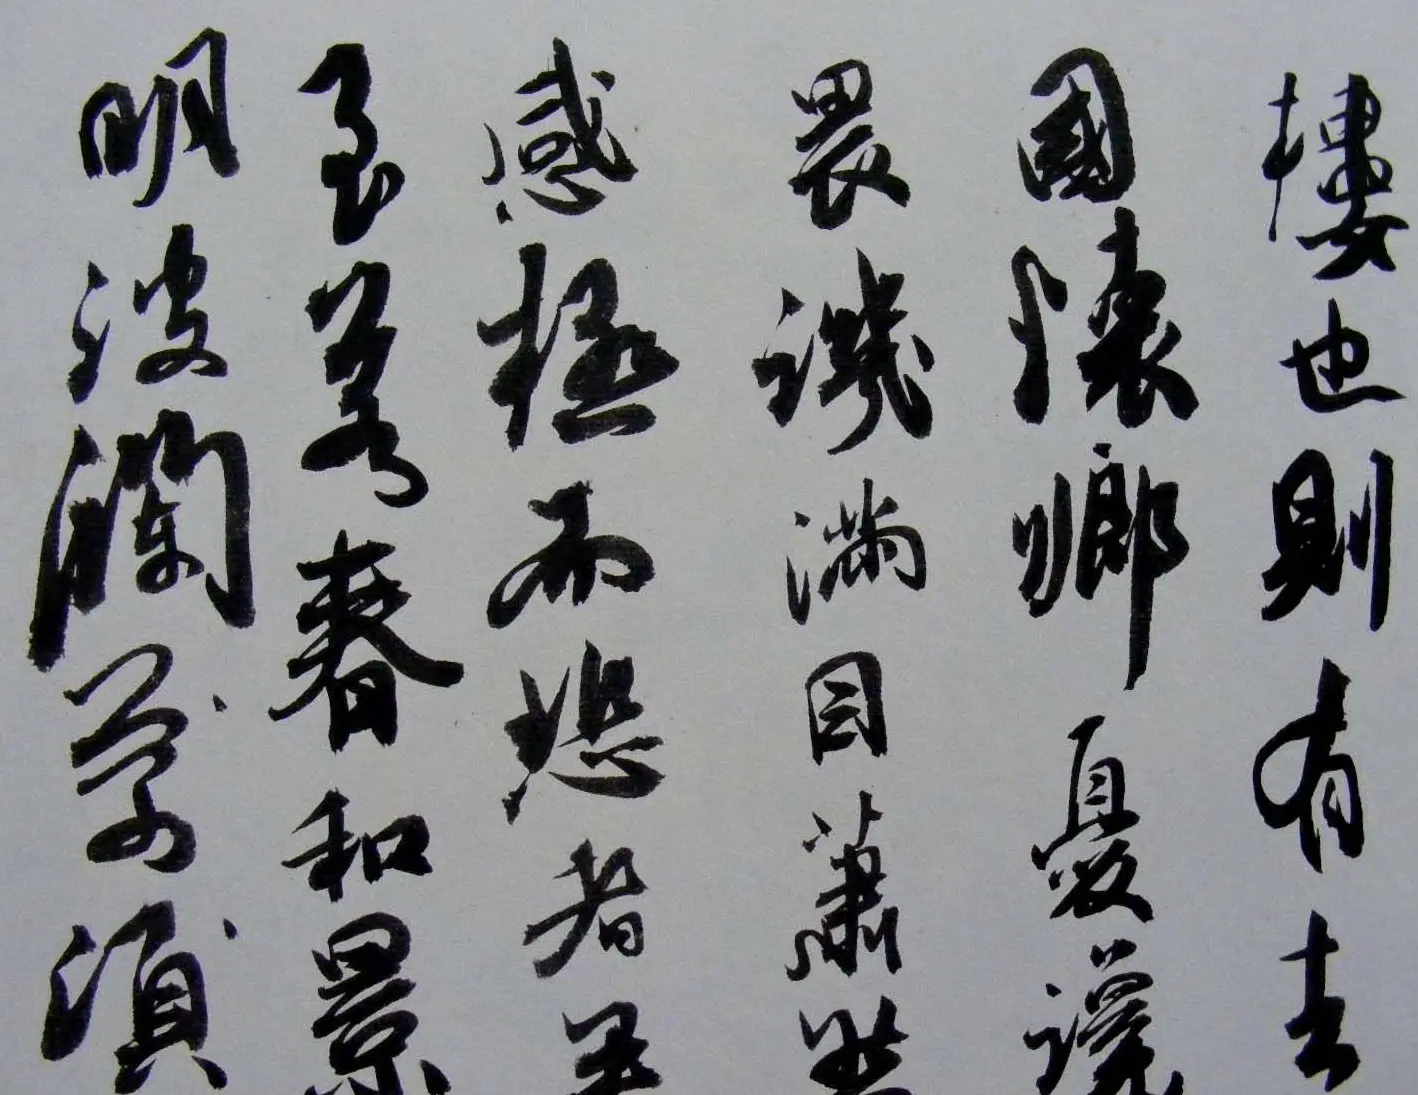 樓也則有去
國懷鄉憂讒
畏譏滿目蕭然
感極而悲者矣
至若春和景
明波瀾萬頃